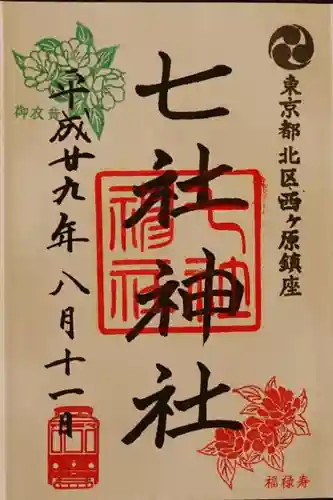 東京都北区西ヶ原鎮座
七社神社
七社
神社
平成廿九年八月十一日
御衣黄
福禄寿